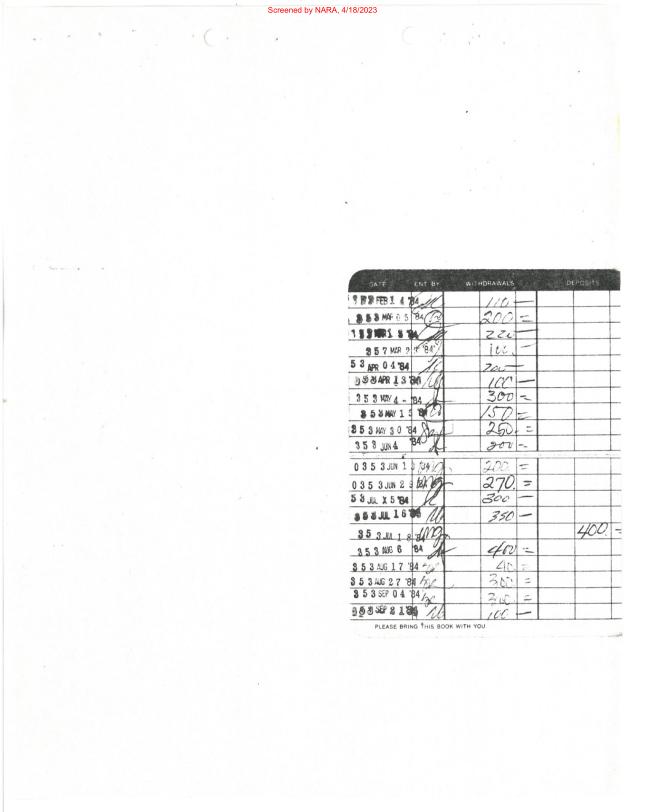 Screened by NARA, 4/18/2023
DATE ENT BY WITHDRAWALS DEPOSITS
FEB 1 4 '84 110 —
353 MAR 05 '84 200 =
220 —
357 MAR 2 '84 100 —
53 APR 04 '84 —
APR 13 100 —
353 MAY 4 - '84 300 =
353 MAY 1 150 =
353 MAY 30 '84 250. =
353 JUN 4 '84 200 =
0353 JUN 1 '84 200. =
0353 JUN 2 270. =
53 JUL X5 '84 300 —
353 JUL 16 350 —
353 JUL 18 400. =
353 AUG 6 '84 400 =
353 AUG 17 '84 40. =
353 AUG 27 '84 300 =
353 SEP 04 '84 300 =
353 SEP 21 100 —
PLEASE BRING THIS BOOK WITH YOU